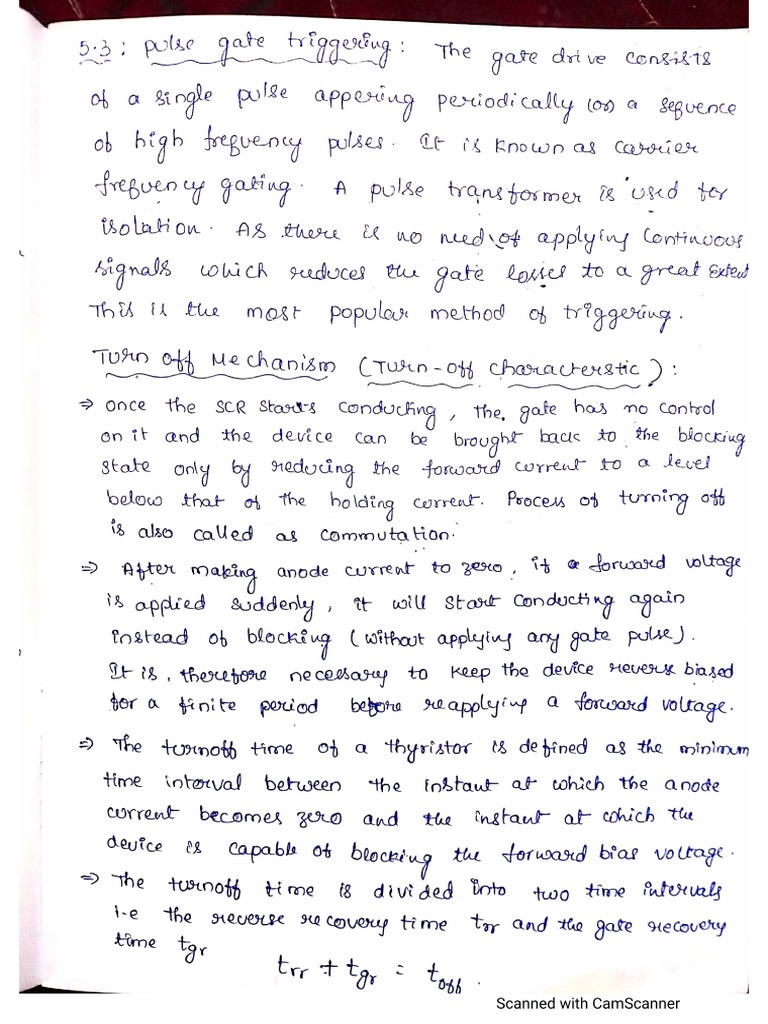 5.3: Pulse gate triggering: The gate drive consists
of a single pulse appering periodically (or) a sequence
of high frequency pulses. It is known as carrier
frequency gating. A pulse transformer is used for
isolation. As there is no need of applying continuous
signals which reduces the gate losses to a great extent
This is the most popular method of triggering.
Turn off Mechanism (Turn-off characterstic):
⇒ Once the SCR starts conducting, the gate has no control
on it and the device can be brought back to the blocking
state only by reducing the forward current to a level
below that of the holding current. Process of turning off
is also called as commutation.
⇒ After making anode current to zero, if a forward voltage
is applied suddenly, it will start conducting again
instead of blocking (without applying any gate pulse).
It is, therefore necessary to keep the device reverse biased
for a finite period before reapplying a forward voltage.
⇒ The turnoff time of a thyristor is defined as the minimum
time interval between the instant at which the anode
current becomes zero and the instant at which the
device is capable of blocking the forward bias voltage.
⇒ The turnoff time is divided into two time intervals
i-e the reverse recovery time trr and the gate recovery
time tgr
trr + tgr = toff.
Scanned with CamScanner